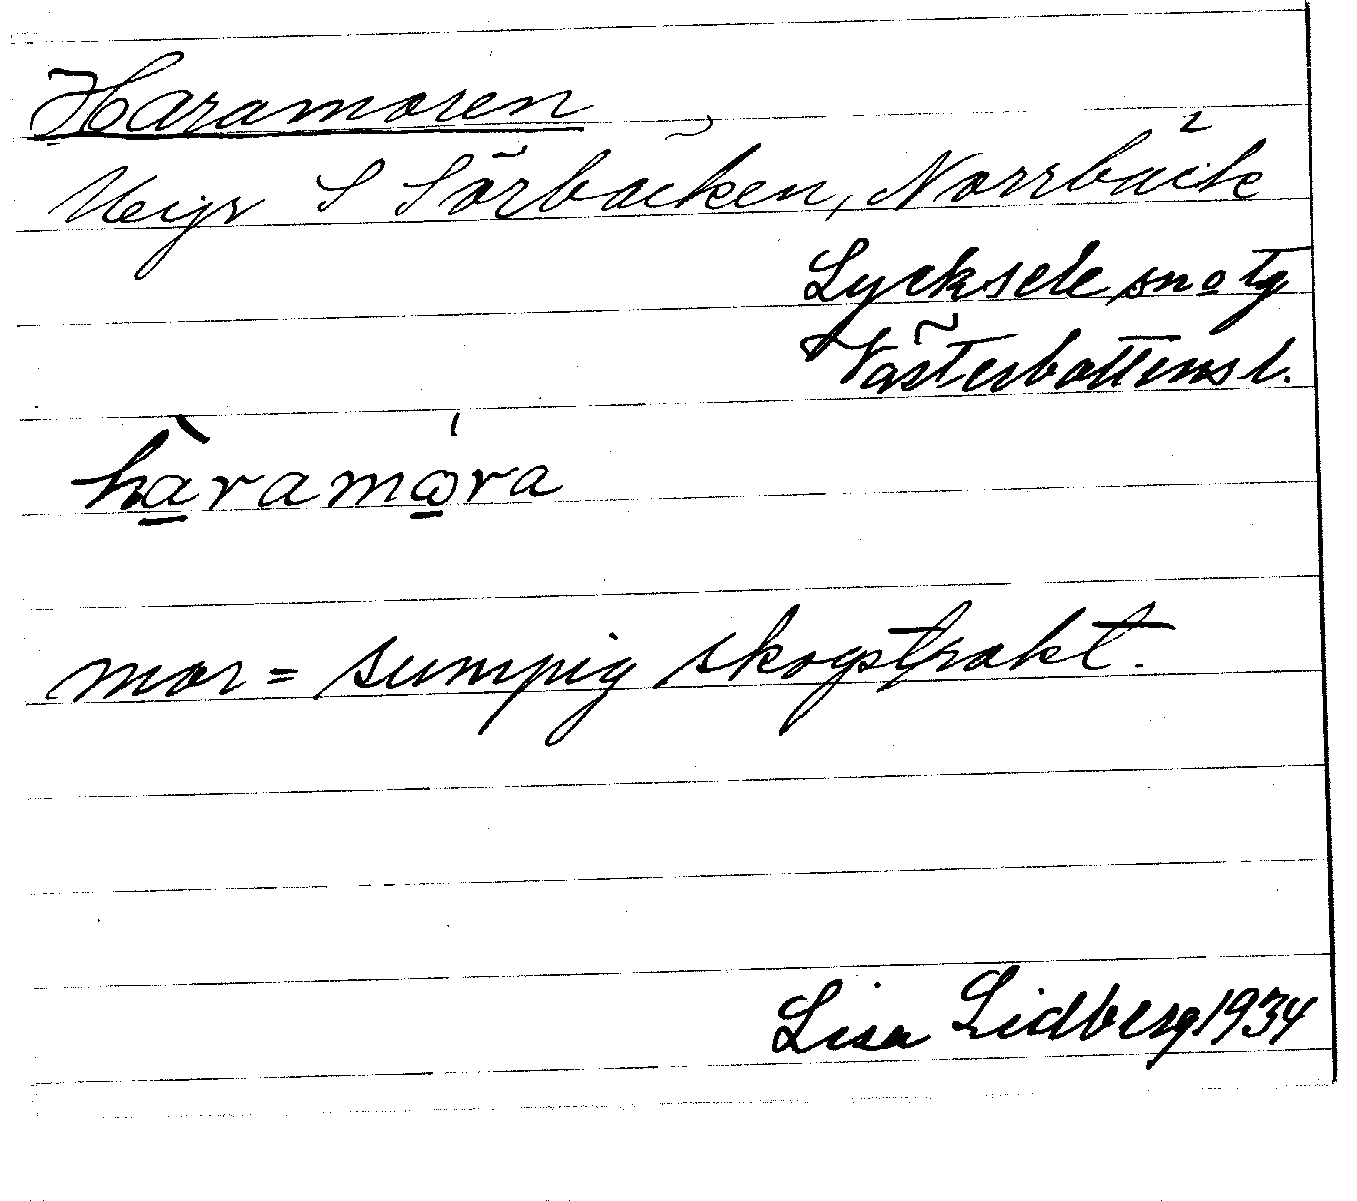 Haramoren
S Sörbäcken, Norrbäck
Lycksele sn o tg
Västerbottens l.
hàramώ̲ra
mor = sumpig skogstrakt.
Lisa Lidberg 1934